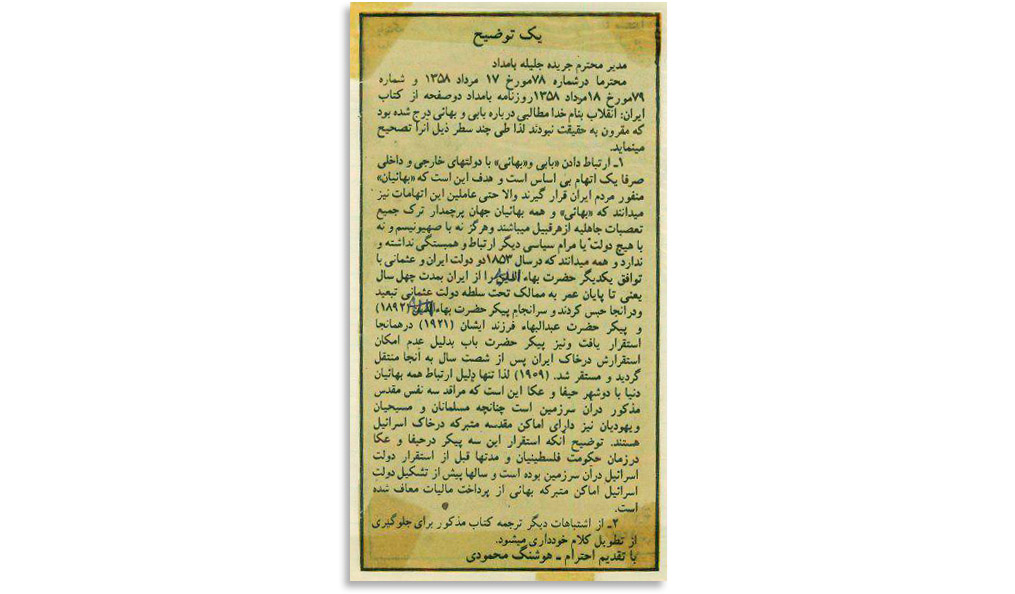 یک توضیح
مدیر محترم جریده جلیله بامداد
محترما درشماره ۷۸مورخ ۱۷ مرداد ۱۳۵۸ و شماره
۷۹مورخ ۱۸مرداد ۱۳۵۸روزنامه بامداد دوصفحه از کتاب
ایران: انقلاب بنام خدا مطالبی درباره بابی و بهائی درج شده بود
که مقرون به حقیقت نبودند لذا طی چند سطر ذیل آنرا تصحیح
مینماید.
۱ـ ارتباط دادن «بابی و«بهائی» با دولتهای خارجی و داخلی
صرفا یک اتهام بی اساس است و هدف این است که «بهائیان»
منفور مردم ایران قرار گیرند والا حتی عاملین این اتهامات نیز
میدانند که «بهائی» و همه بهائیان جهان پرچمدار ترک جمیع
تعصبات جاهلیه ازهرقبیل میباشند وهرگز نه با صهیونیسم و نه
با هیچ دولت یا مرام سیاسی دیگر ارتباط و همبستگی نداشته و
ندارد و همه میدانند که درسال ۱۸۵۳دو دولت ایران و عثمانی با
توافق یکدیگر حضرت بهاء الله را از ایران بمدت چهل سال
یعنی تا پایان عمر به ممالک تحت سلطه دولت عثمانی تبعید
ودرآنجا حبس کردند و سرانجام پیکر حضرت بهاء الله (۱۸۹۲)
و پیکر حضرت عبدالبهاء فرزند ایشان (۱۹۲۱) درهمانجا
استقرار یافت ونیز پیکر حضرت باب بدلیل عدم امکان
استقرارش درخاک ایران پس از شصت سال به آنجا منتقل
گردید و مستقر شد. (۱۹۰۹) لذا تنها دلیل ارتباط همه بهائیان
دنیا با دوشهر حیفا و عکا این است که مراقد سه نفس مقدس
مذکور درآن سرزمین است چنانچه مسلمانان و مسیحیان
ویهودیان نیز دارای اماکن مقدسه متبرکه درخاک اسرائیل
هستند. توضیح آنکه استقرار این سه پیکر درحیفا و عکا
درزمان حکومت فلسطینیان و مدتها قبل از استقرار دولت
اسرائیل درآن سرزمین بوده است و سالها پیش از تشکیل دولت
اسرائیل اماکن متبرکه بهائی از پرداخت مالیات معاف شده
است.
۲ـ از اشتباهات دیگر ترجمه کتاب مذکور برای جلوگیری
از تطویل کلام خودداری میشود.
با تقدیم احترام ـ هوشنگ محمودی